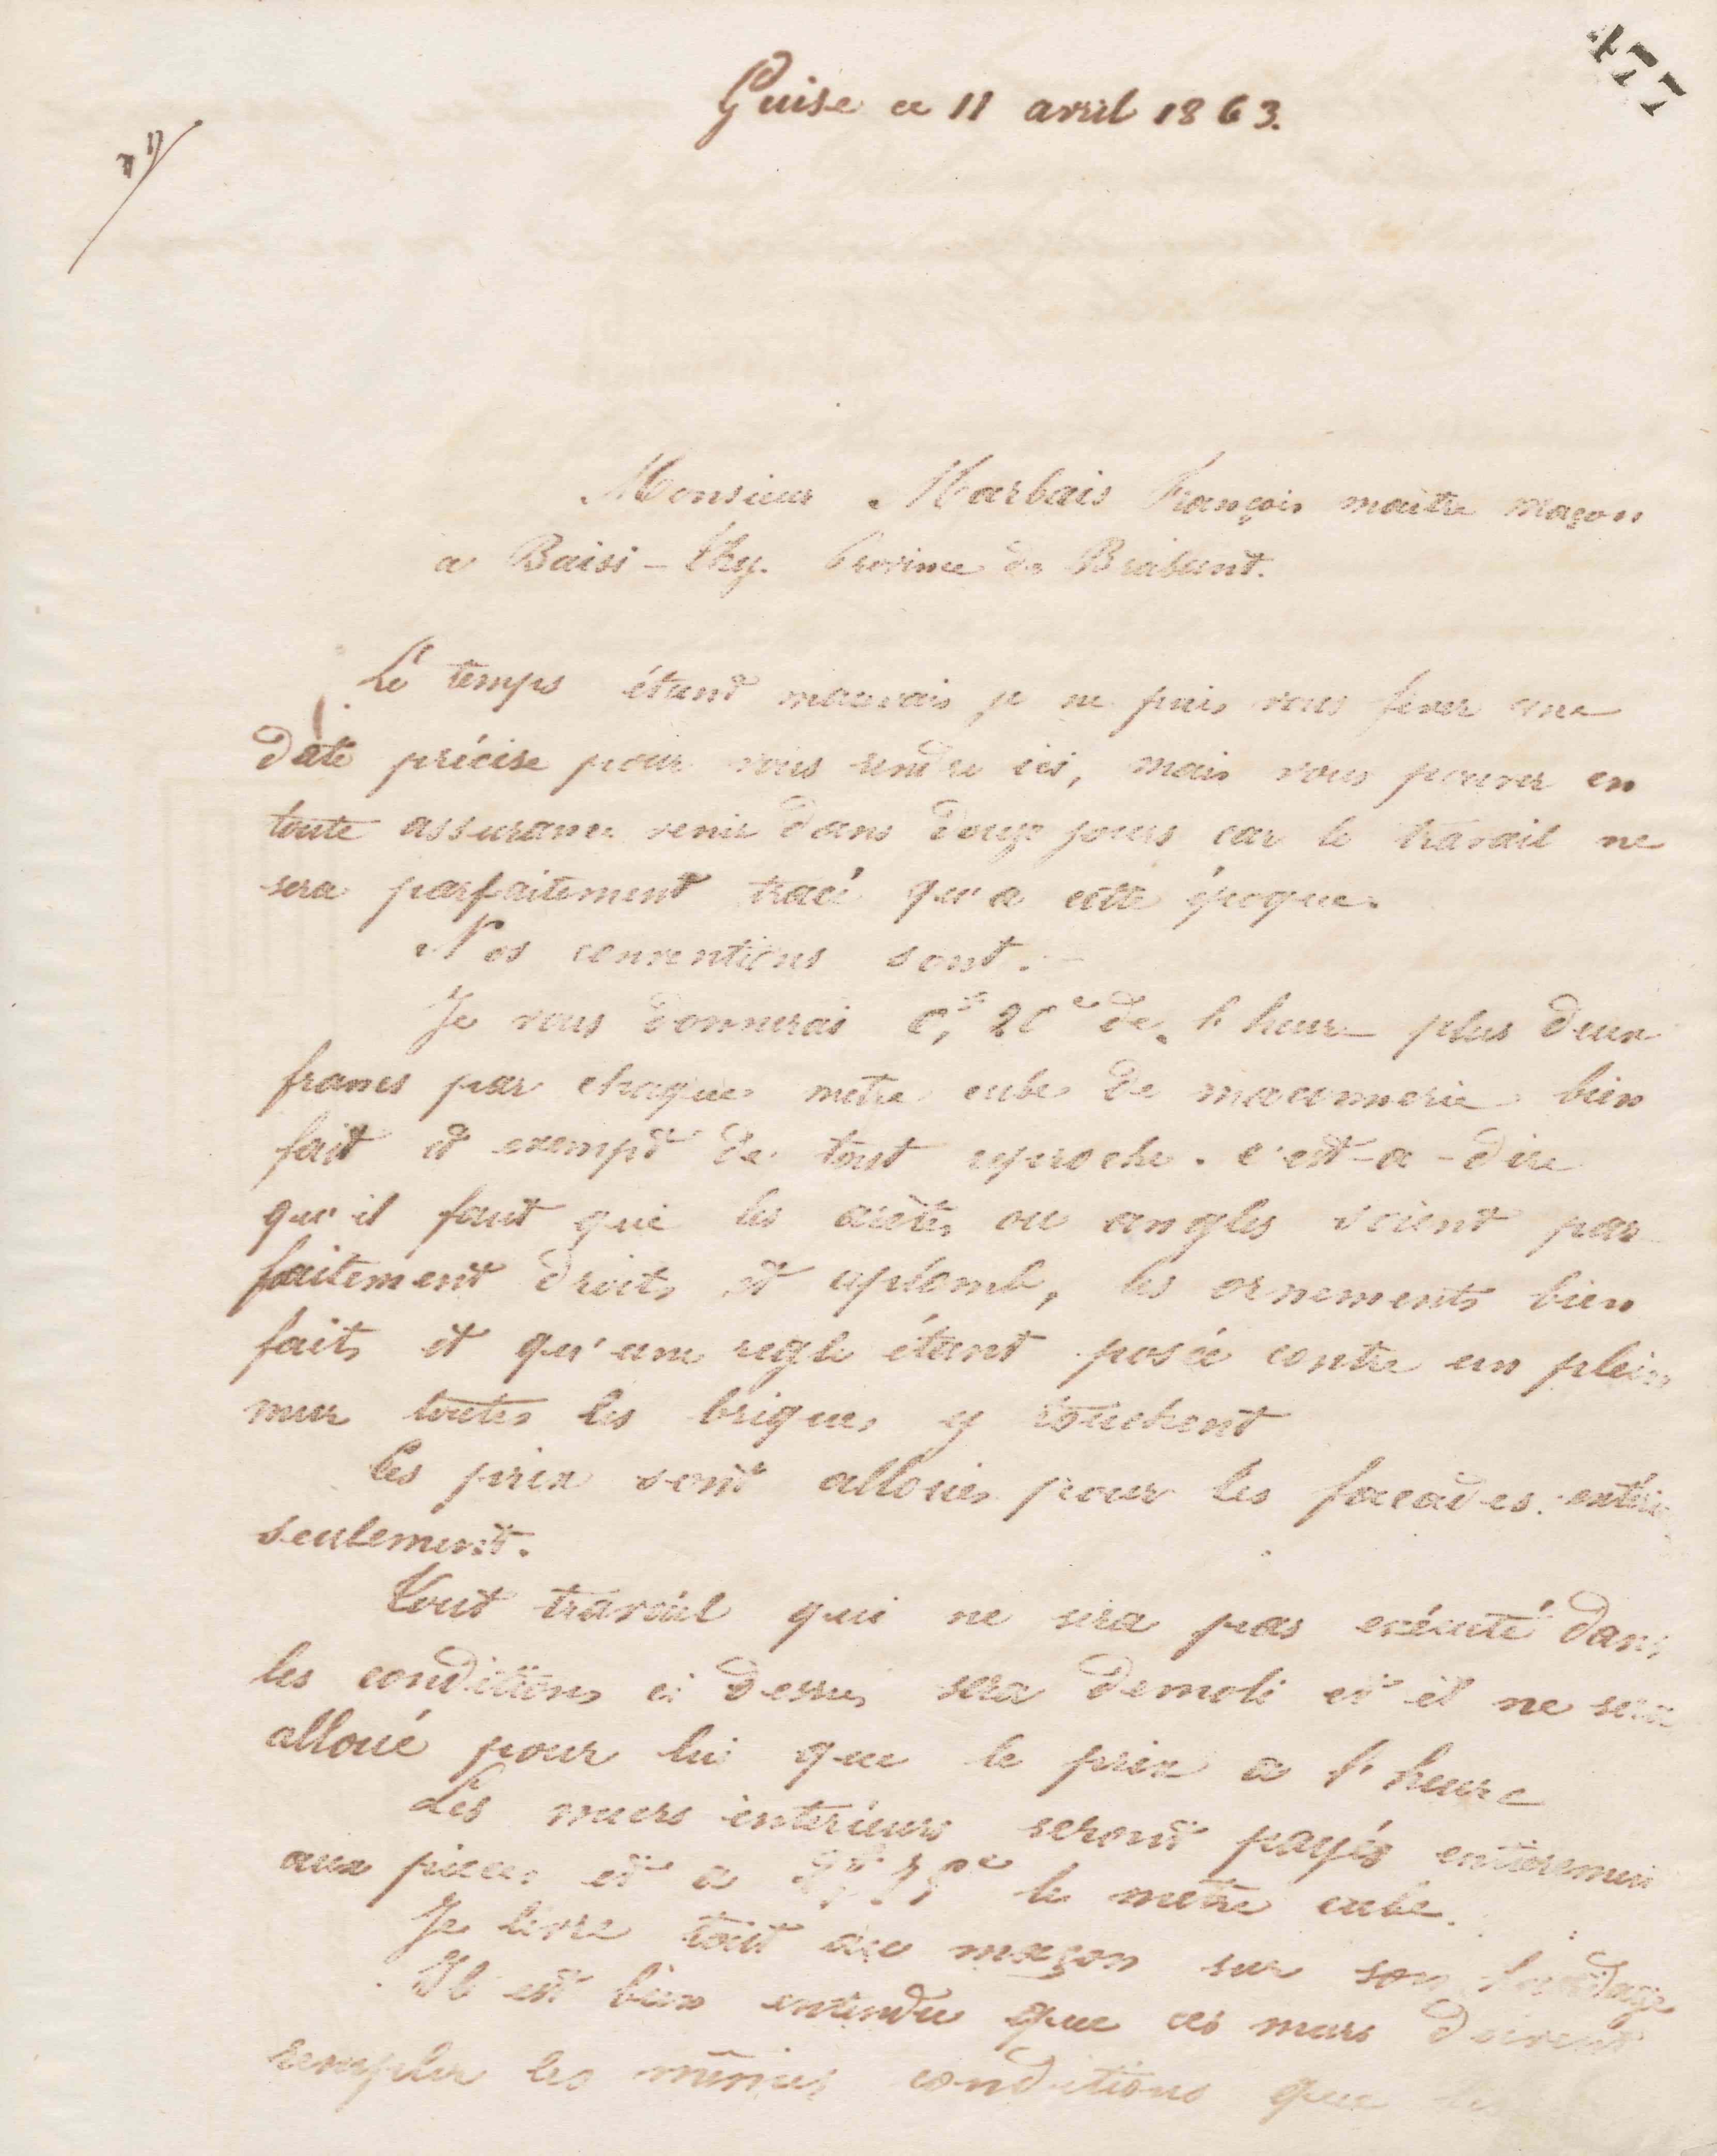 477
Guise ce 11 avril 1863.
Monsieur Marbais François maître maçon
a Baisi-Thy. Province de Brabant.
Le temps étant mauvais je ne puis vous fixer une
date précise pour vous rendre ici, mais vous pouvez en
toute assurance venir dans douze jours car le travail ne
sera parfaitement tracé qu'a cette époque.
Nos conventions sont.
Je vous donnerai 0f, 20c de l'heure plus deux
francs par chaque metre cube de maconnerie bien
fait et exempt de tout reproche. c'est-a-dire
qu'il faut que les arêtes ou angles soient par
faitement droits et aplomb, les ornements bien
faits et qu'une regle étant posée contre un plein
mur toutes les briques y touchent
Ces prix sont alloués pour les facades
seulement.
Tout travail qui ne sera pas exécuté dans
les conditions ci dessus sera demoli et il ne sera
alloué pour lui que le prix a l'heure
Les murs intérieurs seront payés entierement
aux pieces et a le metre cube.
Je livre tout au maçon sur son
Il est bien entendu que ces murs doivent
remplir les mêmes conditions que